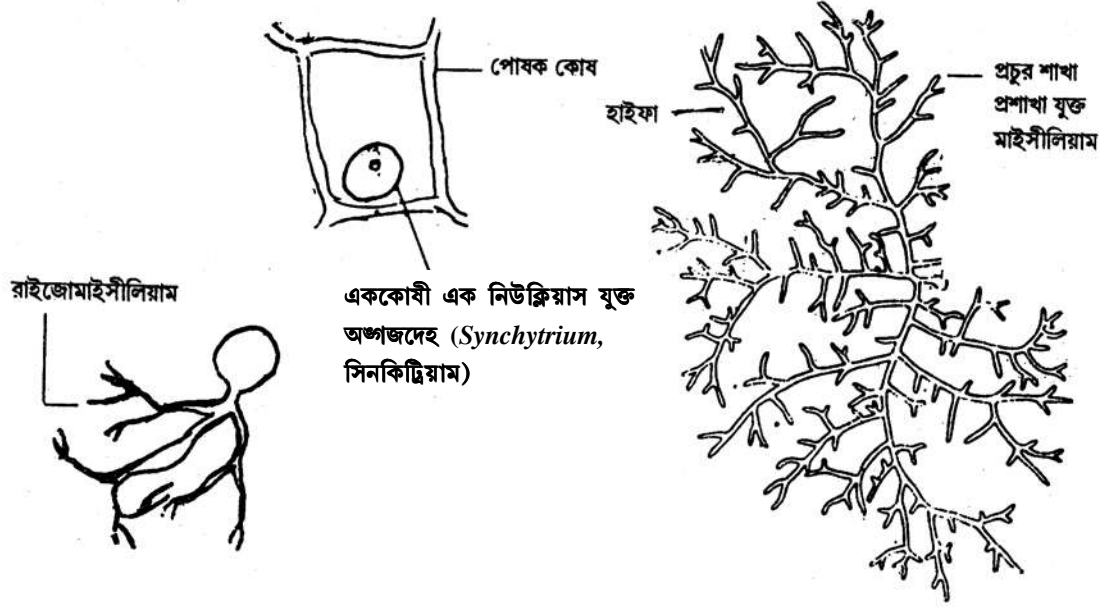 পোষক কোষ
হাইফা
প্রচুর শাখা
প্রশাখা যুক্ত
মাইসীলিয়াম
রাইজোমাইসীলিয়াম
এককোষী এক নিউক্লিয়াস যুক্ত
অঙ্গজদেহ (Synchytrium,
সিনকিট্রিয়াম)